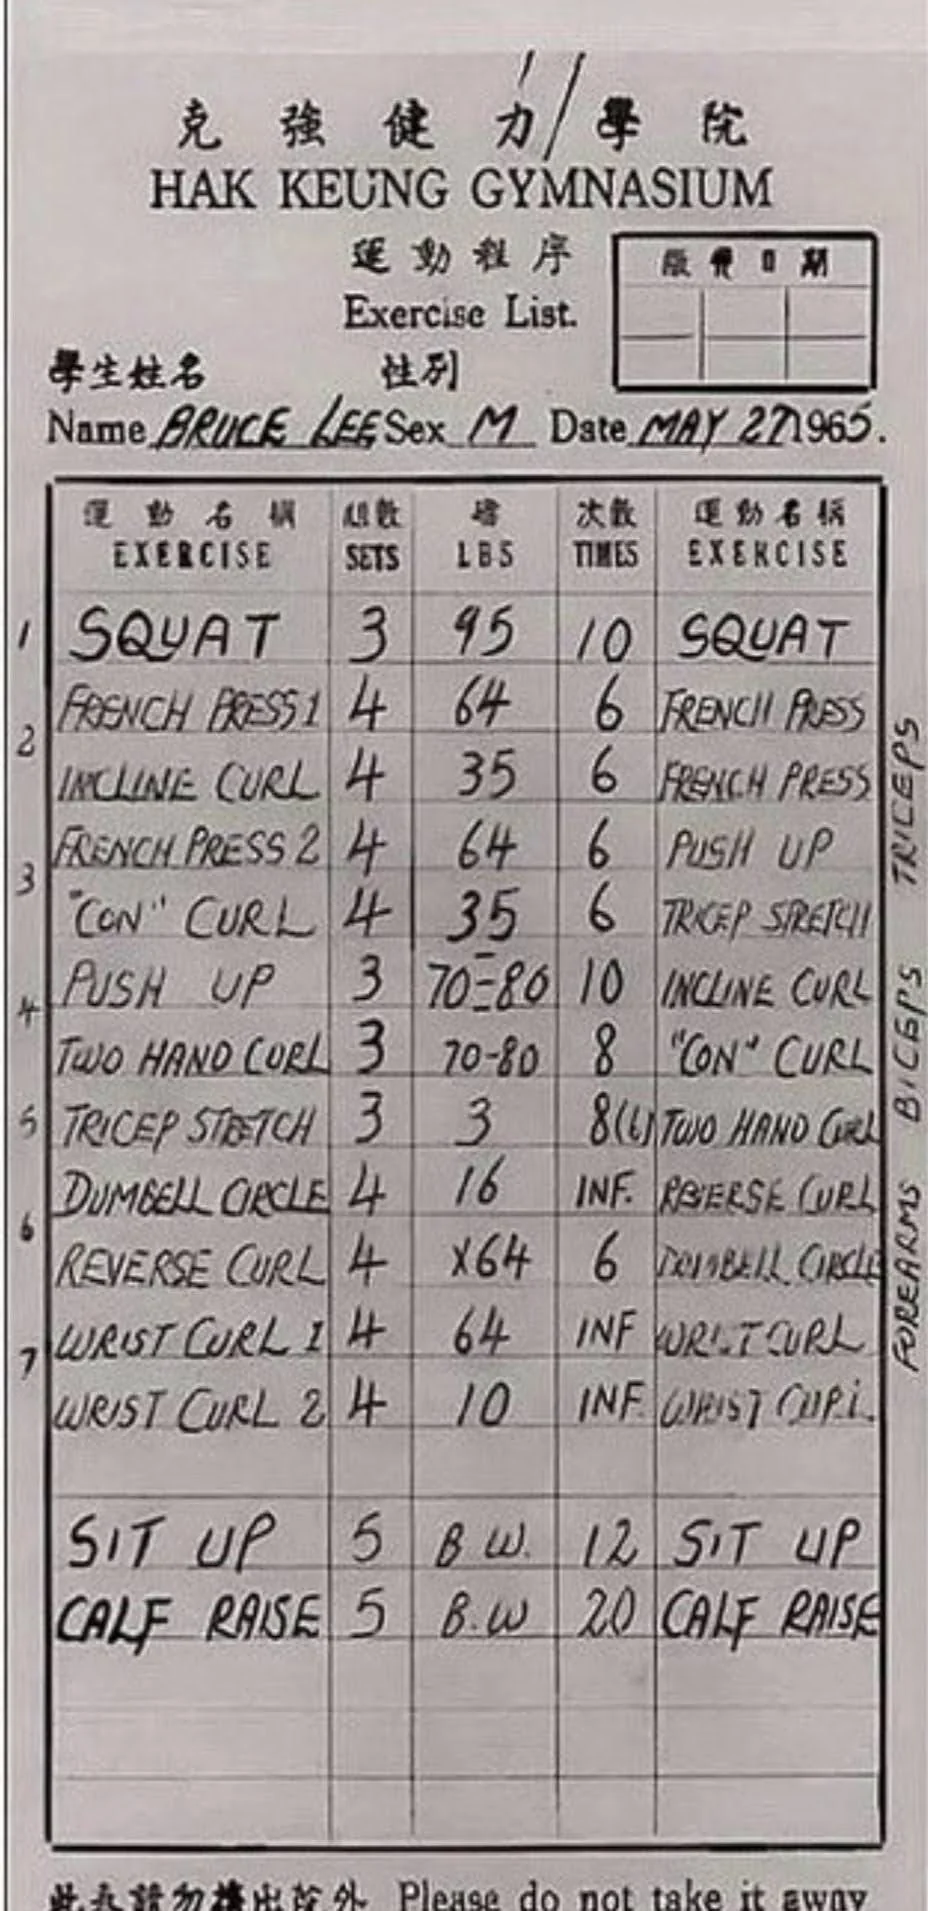 克強健力學院
HAK KEUNG GYMNASIUM
運動程序
Exercise List.
繳費日期
學生姓名 性別
Name BRUCE LEE Sex M Date MAY 27 1965.
運動名稱 組數 磅 次數 運動名稱
EXERCISE SETS LBS TIMES EXERCISE
1 SQUAT 3 95 10 SQUAT
FRENCH PRESS 1 4 64 6 FRENCH PRESS
2
INCLINE CURL 4 35 6 FRENCH PRESS
FRENCH PRESS 2 4 64 6 PUSH UP
3
"CON" CURL 4 35 6 TRICEP STRETCH
PUSH UP 3 70-80 10 INCLINE CURL
4
TWO HAND CURL 3 70-80 8 "CON" CURL
5 TRICEP STRETCH 3 3 8(6) TWO HAND CURL
DUMBELL CIRCLE 4 16 INF. REVERSE CURL
6
REVERSE CURL 4 X64 6 DUMBELL CIRCLE
WRIST CURL 1 4 64 INF WRIST CURL
7
WRIST CURL 2 4 10 INF. WRIST CURL
SIT UP 5 B.W. 12 SIT UP
CALF RAISE 5 B.W 20 CALF RAISE
TRICEPS
BICEPS
FOREARMS
請勿携出院外 Please do not take it away